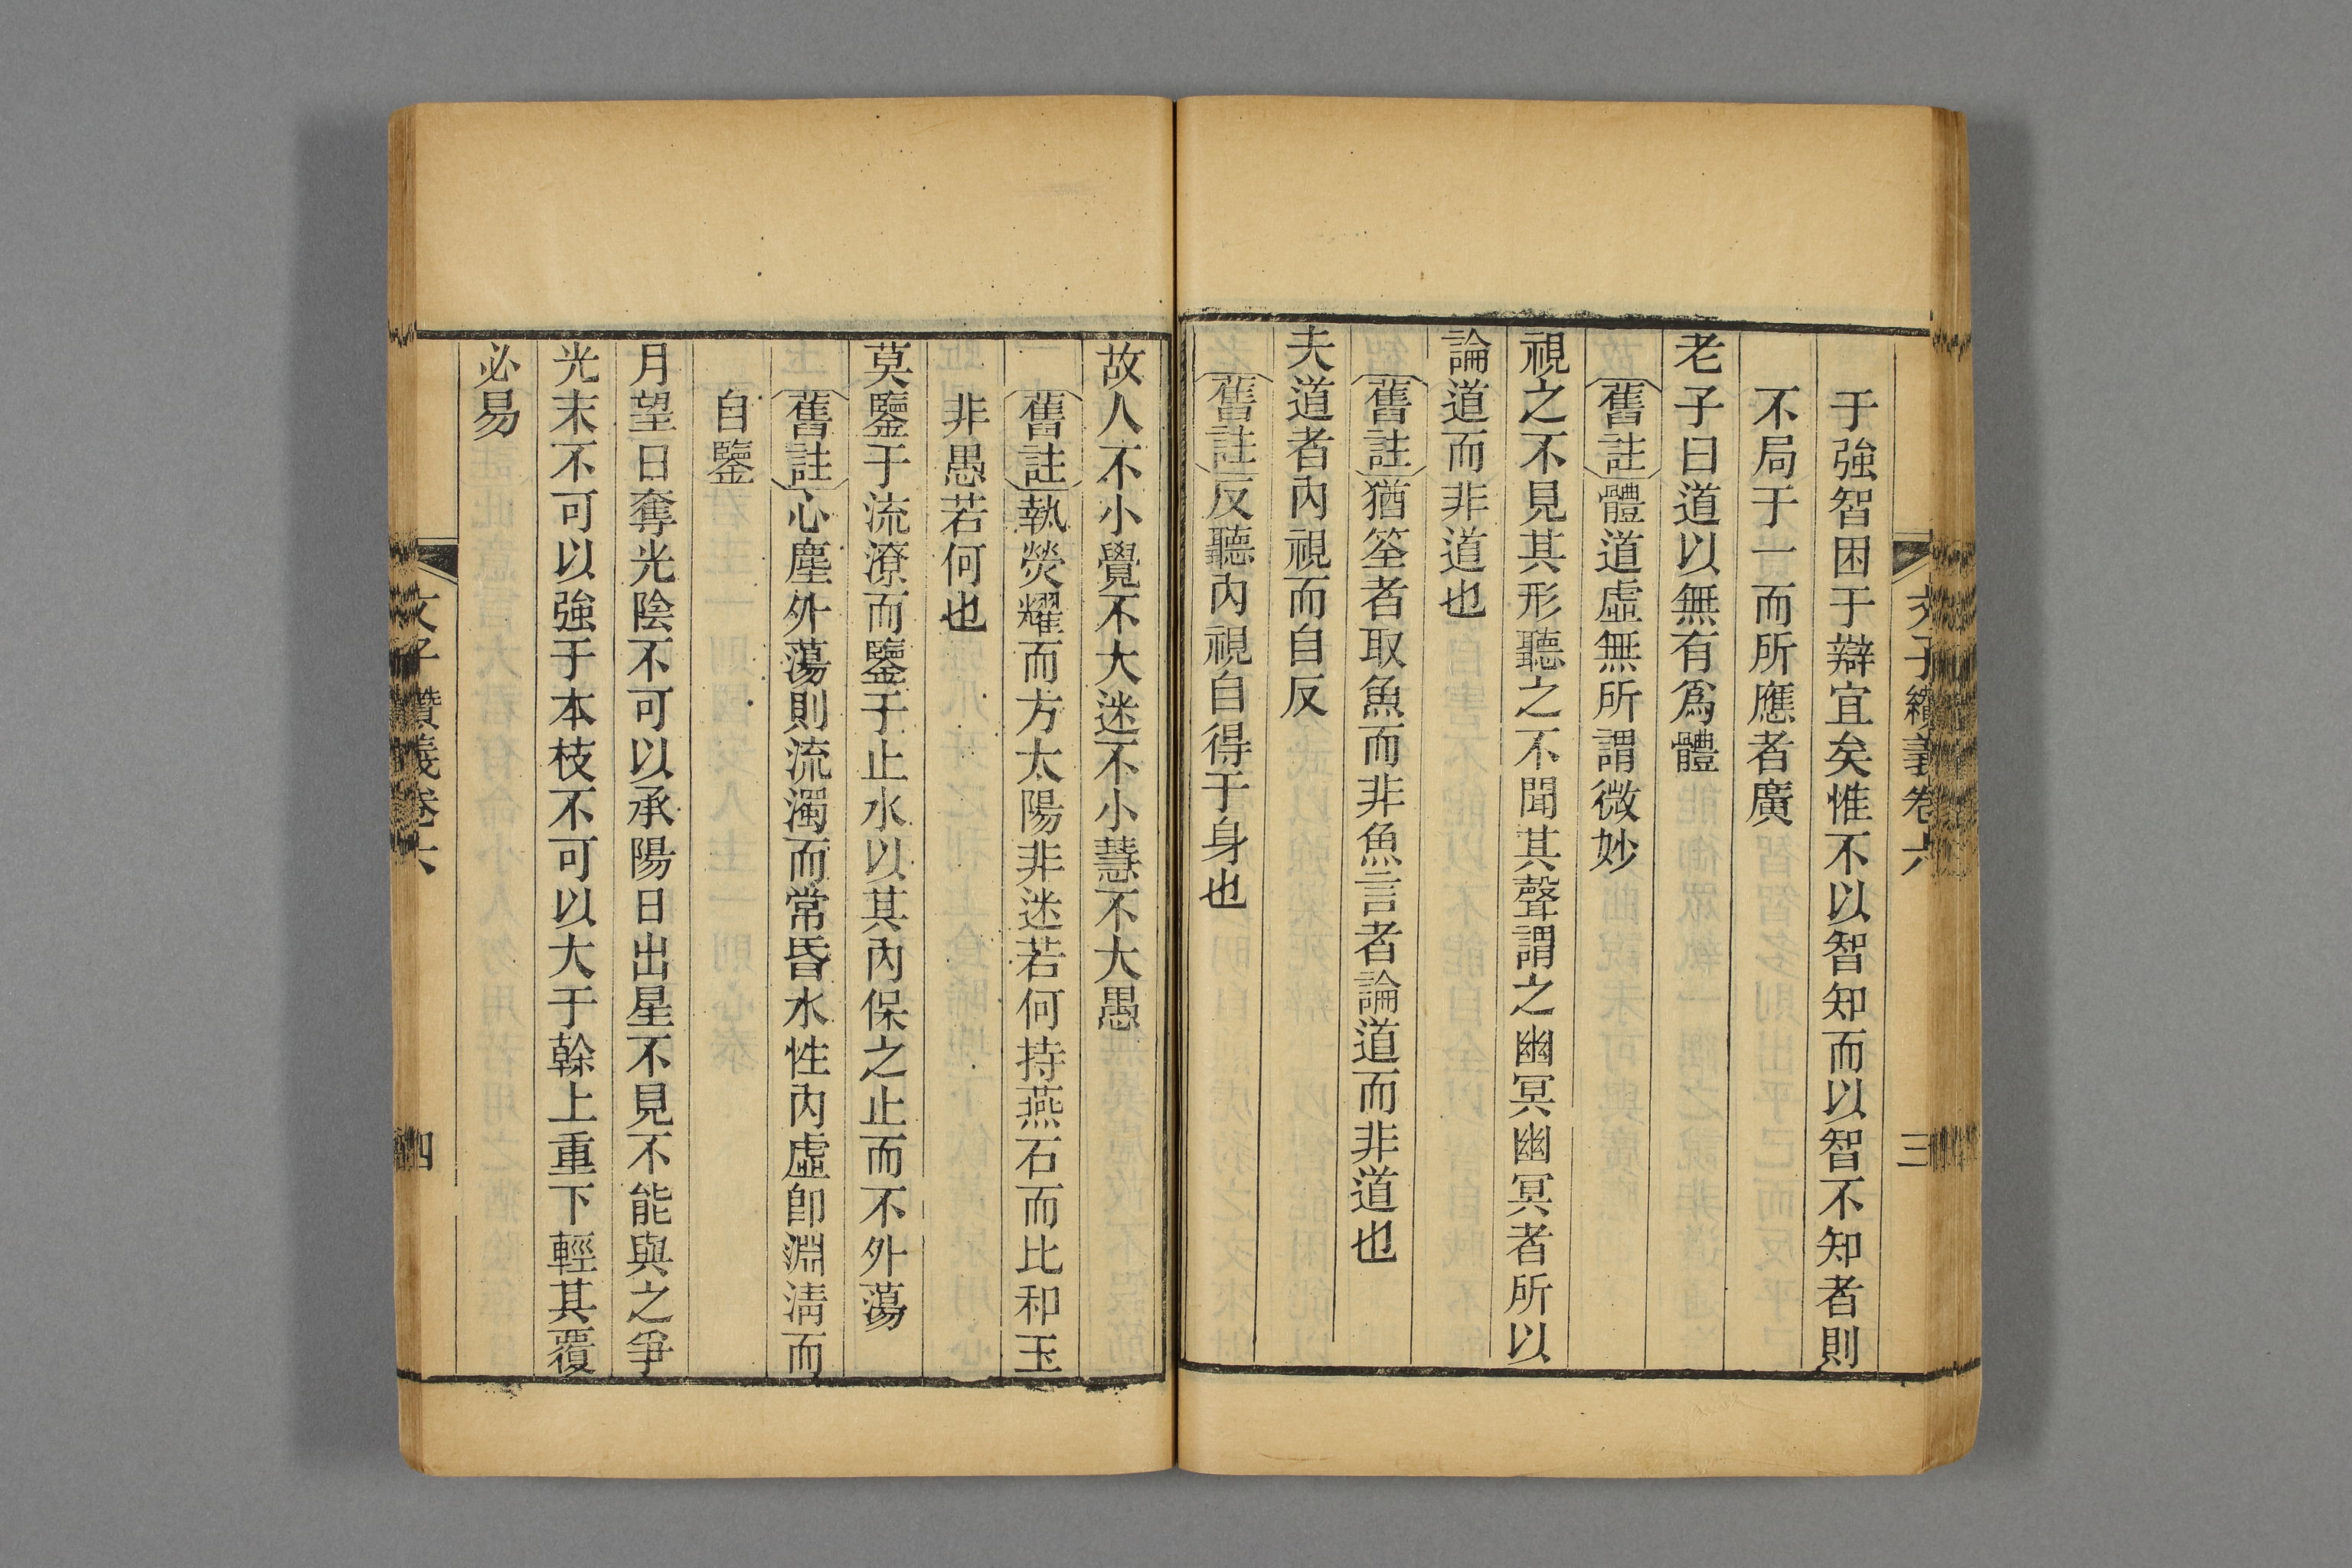 文子纘義卷六
三
于強智困于辯宜矣惟不以智知而以智不知者則
不局于一而所應者廣
老子曰道以無有為體
舊註體道虛無所謂微妙
視之不見其形聽之不聞其聲謂之幽冥幽冥者所以
論道而非道也
舊註猶筌者取魚而非魚言者論道而非道也
夫道者內視而自反
舊註反聽內視自得于身也
故人不小覺不大迷不小慧不大愚
舊註執熒耀而方太陽非迷若何持燕石而比和玉
非愚若何也
莫鑒于流潦而鑒于止水以其內保之止而不外蕩
舊註心塵外蕩則流濁而常昏水性內虛卽淵淸而
自鑒
月望日奪光陰不可以承陽日出星不見不能與之爭
光末不可以強于本枝不可以大于榦上重下輕其覆
必易
文子纘義卷六
四